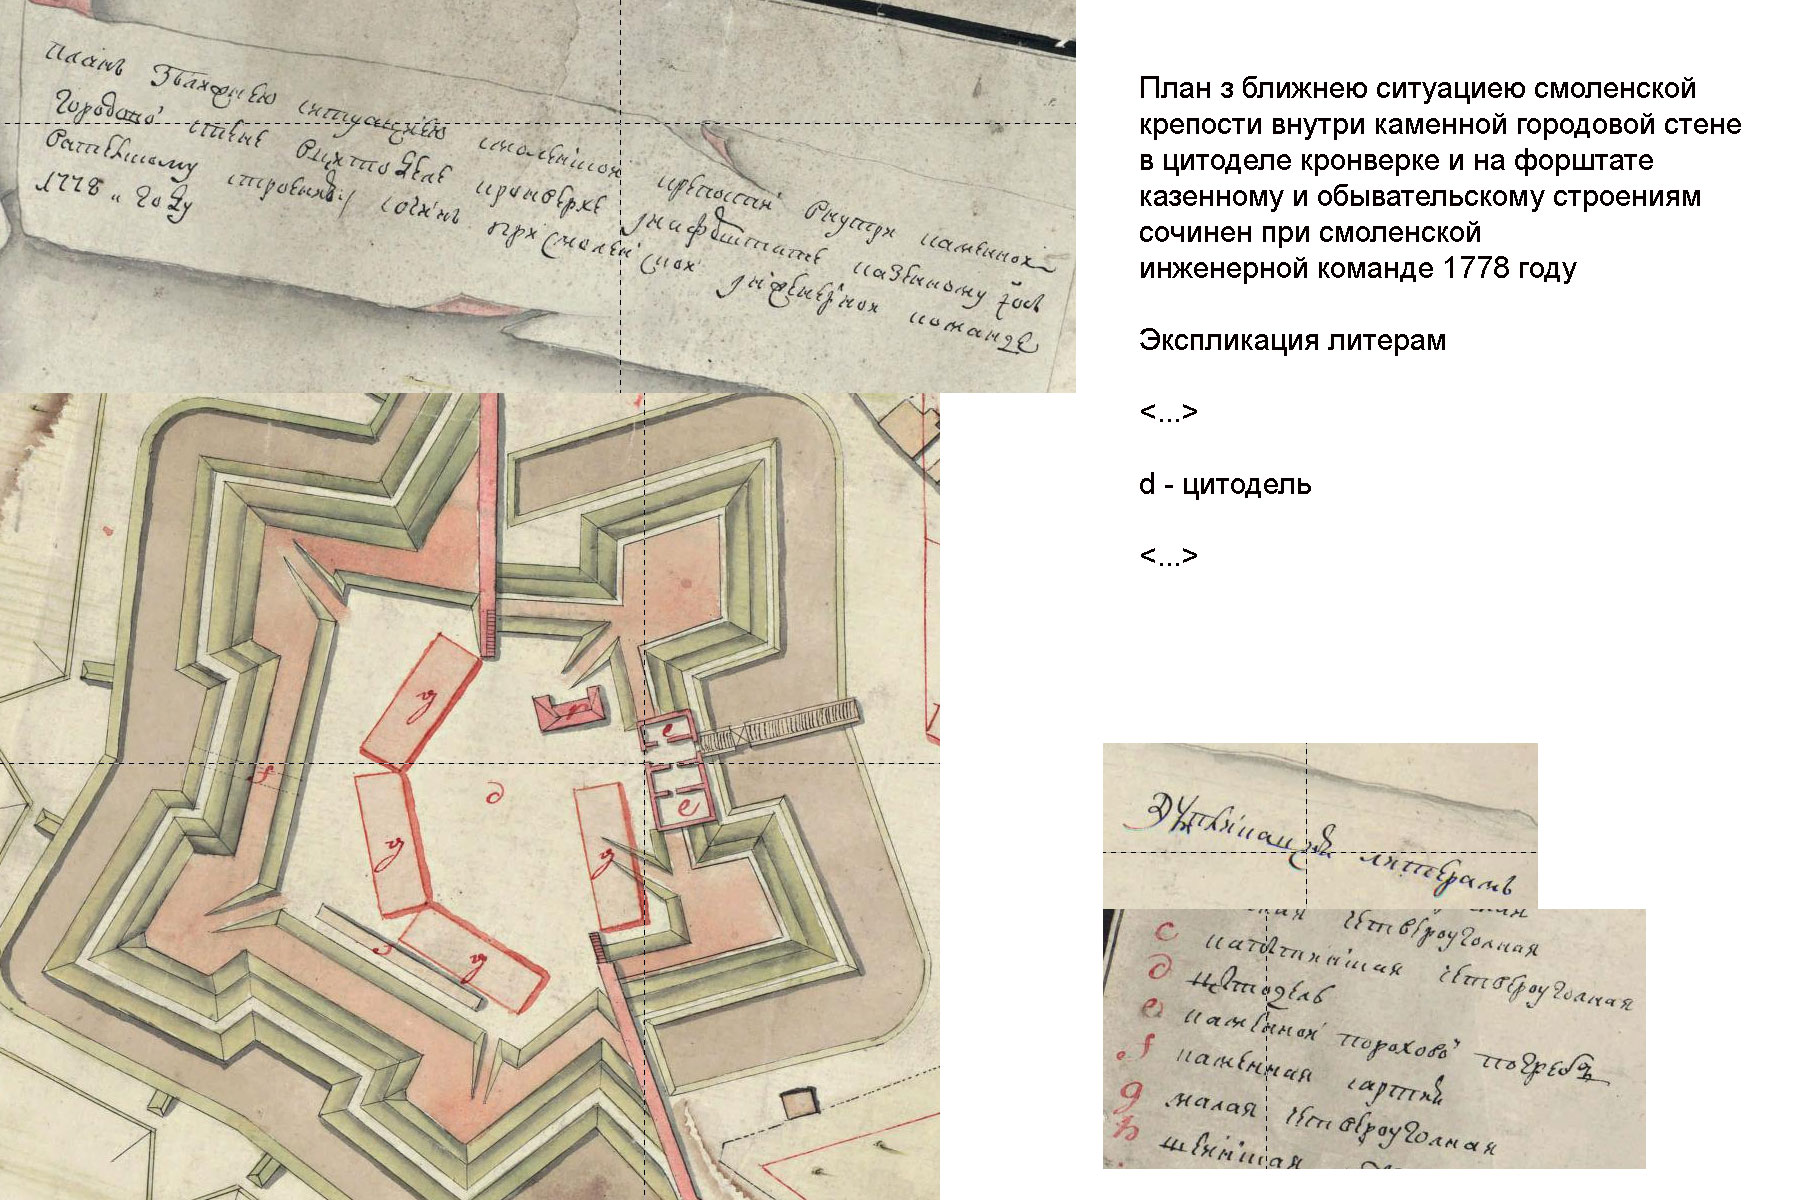 План з ближнею ситуациею смоленской
крепости внутри каменной городовой стене
в цитоделе кронверке и на форштате
казенному и обывательскому строениям
сочинен при смоленской
инженерной команде 1778 году
Экспликация литерам
<...>
d - цитодель
<...>
планъ зближнею ситуациею смоленской крепости внутри каменной
городово стене вцитоделе кронверке инафорштате казенному иобы
вателскому строениев сочинъ присмоленской инженерной команде
1778 году
g
d
e
e
f
g
g
g
Экспликация литерамъ
четвероугольная
c четвероугольная
d цитодель
e каменной порохово погребъ
f каменная
g малая четвероугольная
h